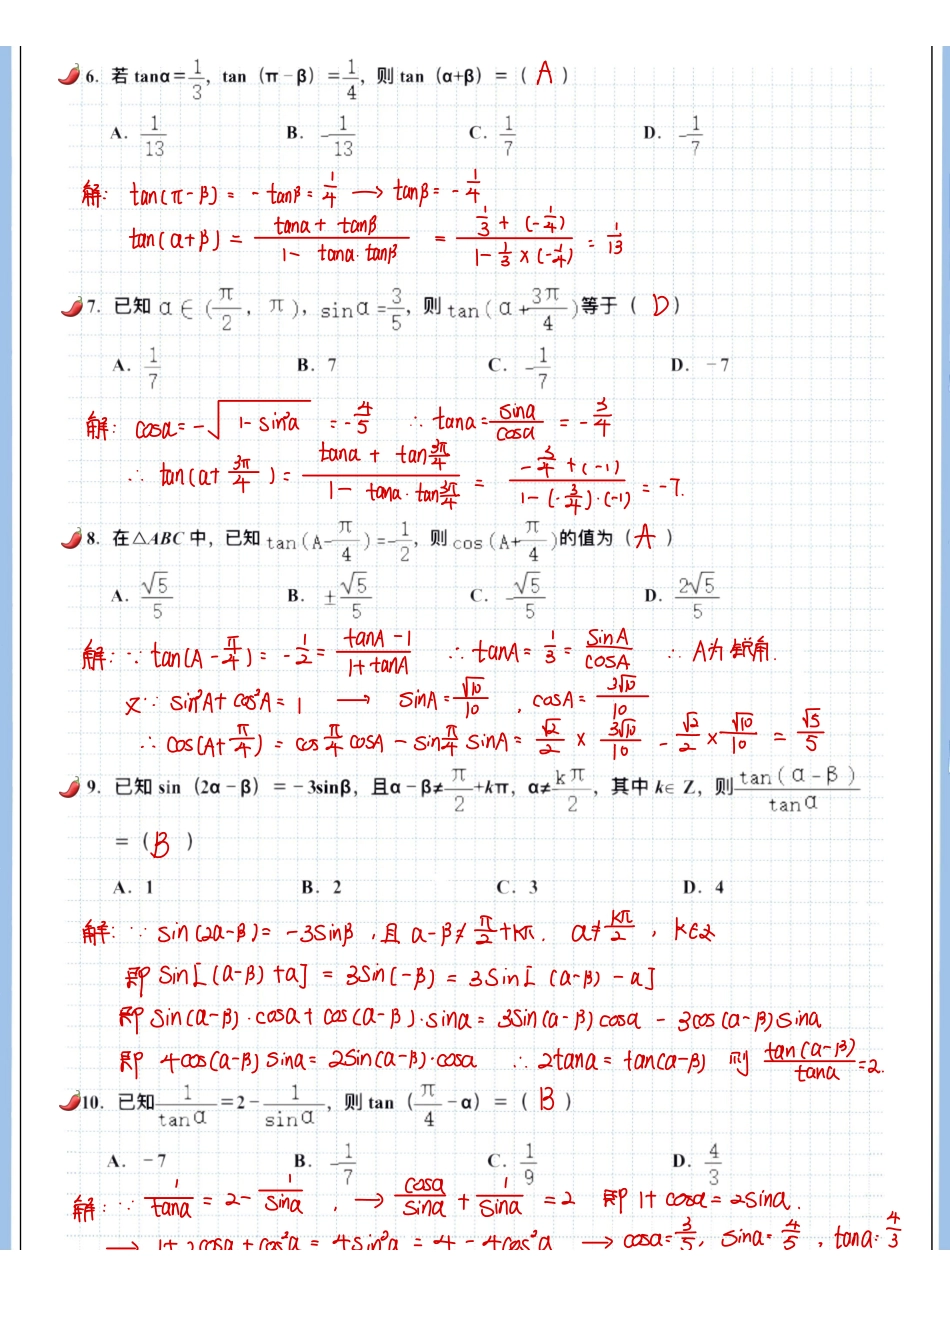 6. 若 tanα=1/3, tan (π-β) =1/4, 则 tan (α+β) = ( A )
A. 1/13 B. -1/13 C. 1/7 D. -1/7
解: tan(π-β) = -tanβ = 1/4 → tanβ = -1/4
tan(α+β) = (tanα+tanβ)/(1-tanα·tanβ) = (1/3+(-1/4))/(1-1/3×(-1/4)) = 1/13
7. 已知 α∈(π/2, π), sinα=3/5, 则 tan(α+3π/4)等于 ( D )
A. 1/7 B. 7 C. -1/7 D. -7
解: cosα=-√(1-sin²α) = -4/5 ∴ tanα=sinα/cosα = -3/4
∴ tan(α+3π/4) = (tanα+tan3π/4)/(1-tanα·tan3π/4) = (-3/4+(-1))/(1-(-3/4)·(-1)) = -7.
8. 在△ABC 中, 已知 tan(A-π/4)=-1/2, 则 cos(A+π/4)的值为 ( A )
A. √5/5 B. ±√5/5 C. -√5/5 D. 2√5/5
解: ∵ tan(A-π/4) = -1/2 = (tanA-1)/(1+tanA) ∴ tanA = 1/3 = sinA/cosA ∴ A为锐角.
又∵ sin²A+cos²A=1 → sinA=√10/10, cosA=3√10/10
∴ cos(A+π/4) = cosπ/4 cosA - sinπ/4 sinA = √2/2 × 3√10/10 - √2/2 × √10/10 = √5/5
9. 已知 sin (2α-β) = -3sinβ, 且α-β≠π/2+kπ, α≠kπ/2, 其中 k∈Z, 则tan(α-β)/tanα
= ( B )
A. 1 B. 2 C. 3 D. 4
解: ∵ sin(2α-β) = -3sinβ, 且 α-β≠π/2+kπ. α≠kπ/2, k∈Z
即 sin[(α-β)+α] = 3sin(-β) = 3sin[(α-β)-α]
即 sin(α-β)·cosα+cos(α-β)·sinα = 3sin(α-β)cosα - 3cos(α-β)sinα
即 4cos(α-β)sinα = 2sin(α-β)·cosα ∴ 2tanα = tan(α-β) 则 tan(α-β)/tanα=2.
10. 已知1/tanα=2-1/sinα, 则 tan (π/4-α) = ( B )
A. -7 B. -1/7 C. 1/9 D. 4/3
解: ∵ 1/tanα = 2-1/sinα, → cosα/sinα+1/sinα=2 即 1+cosα=2sinα.
→ 1+2cosα+cos²α = 4sin²α = 4-4cos²α → cosα=3/5, sinα=4/5, tanα=4/3